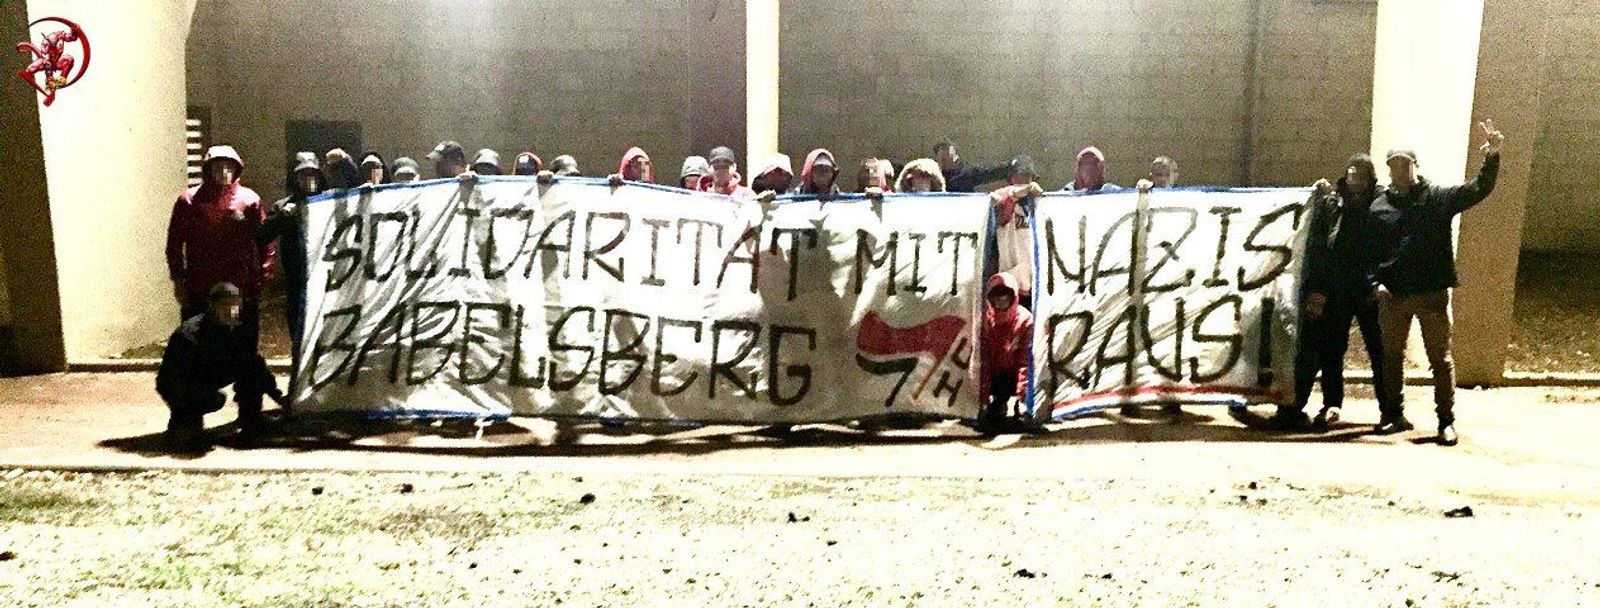 SOLIDARITÄT MIT
BABELSBERG
UH
NAZIS
RAUS!